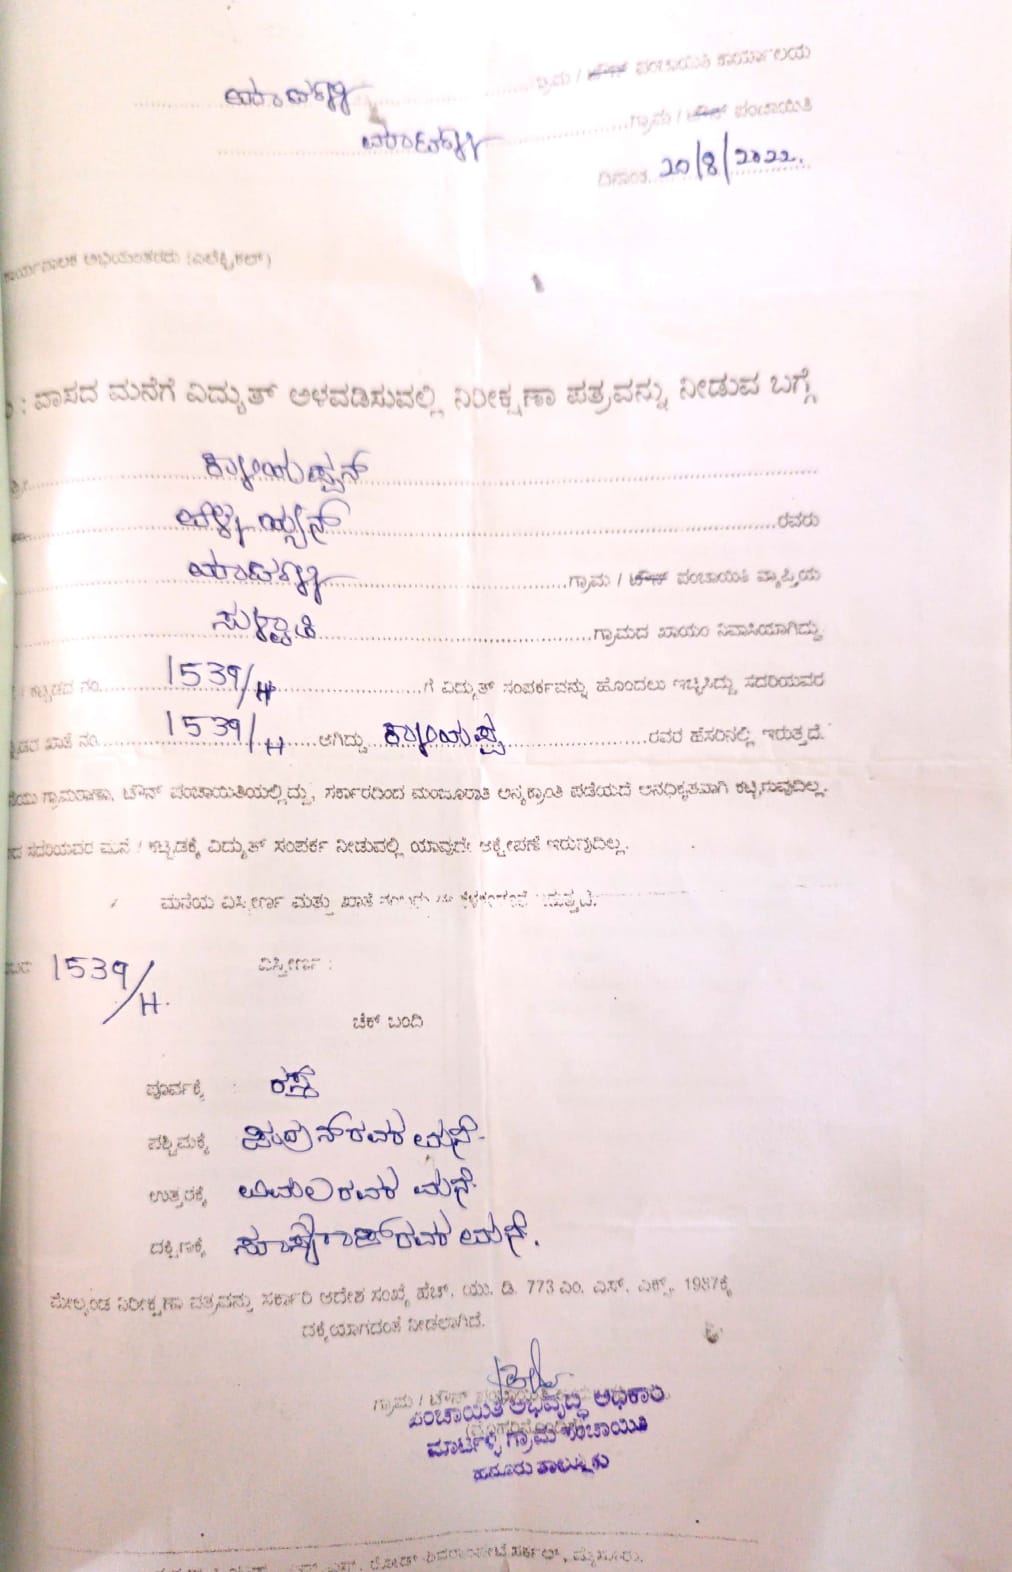 ಮಾರ್ಟಳ್ಳಿ ಗ್ರಾಮ / ಟೌನ್ ಪಂಚಾಯಿತಿ ಕಾರ್ಯಾಲಯ
ಮಾರ್ಟಳ್ಳಿ ಗ್ರಾಮ / ಟೌನ್ ಪಂಚಾಯಿತಿ
ದಿನಾಂಕ. 20/8/2022.
ಕಾರ್ಯಪಾಲಕ ಅಭಿಯಂತರರು (ಎಲೆಕ್ಟ್ರಿಕಲ್)
: ವಾಸದ ಮನೆಗೆ ವಿದ್ಯುತ್ ಅಳವಡಿಸುವಲ್ಲಿ ನಿರೀಕ್ಷಣಾ ಪತ್ರವನ್ನು ನೀಡುವ ಬಗ್ಗೆ
ರವರು
ಮಾರ್ಟಳ್ಳಿ ಗ್ರಾಮ / ಟೌನ್ ಪಂಚಾಯಿತಿ ವ್ಯಾಪ್ತಿಯ
ಸುಳ್ವಾಡಿ ಗ್ರಾಮದ ಖಾಯಂ ನಿವಾಸಿಯಾಗಿದ್ದು,
/ ಕಟ್ಟಡದ ನಂ. 1539/H ಗೆ ವಿದ್ಯುತ್ ಸಂಪರ್ಕವನ್ನು ಹೊಂದಲು ಇಚ್ಛಿಸಿದ್ದು ಸದರಿಯವರ
ಖಾತೆ ನಂ. 1539/H ಆಗಿದ್ದು ರವರ ಹೆಸರಿನಲ್ಲಿ ಇರುತ್ತದೆ.
ಗ್ರಾಮಠಾಣಾ, ಟೌನ್ ಪಂಚಾಯಿತಿಯಲ್ಲಿದ್ದು, ಸರ್ಕಾರದಿಂದ ಮಂಜೂರಾತಿ ಅನ್ಯಕ್ರಾಂತಿ ಪಡೆಯದೆ ಅನಧಿಕೃತವಾಗಿ ಕಟ್ಟಿರುವುದಿಲ್ಲ.
ಸದರಿಯವರ ಮನೆ / ಕಟ್ಟಡಕ್ಕೆ ವಿದ್ಯುತ್ ಸಂಪರ್ಕ ನೀಡುವಲ್ಲಿ ಯಾವುದೇ ಆಕ್ಷೇಪಣೆ ಇರುವುದಿಲ್ಲ.
ಮನೆಯ ವಿಸ್ತೀರ್ಣ ಮತ್ತು ಖಾತೆ ಇರುತ್ತದೆ.
1539/H. ವಿಸ್ತೀರ್ಣ :
ಚೆಕ್ ಬಂದಿ
ಪೂರ್ವಕ್ಕೆ : ರಸ್ತೆ
ಪಶ್ಚಿಮಕ್ಕೆ ರವರ ಮನೆ.
ಉತ್ತರಕ್ಕೆ ವಿಮಲರವರ ಮನೆ.
ದಕ್ಷಿಣಕ್ಕೆ ರವರ ಮನೆ.
ಮೇಲ್ಕಂಡ ನಿರೀಕ್ಷಣಾ ಪತ್ರವನ್ನು ಸರ್ಕಾರಿ ಆದೇಶ ಸಂಖ್ಯೆ ಹೆಚ್. ಯು. ಡಿ. 773 ಎಂ. ಎಸ್. ಎಕ್ಸ್. 1987ಕ್ಕೆ
ದಕ್ಕೆಯಾಗದಂತೆ ನೀಡಲಾಗಿದೆ.
ಗ್ರಾಮ / ಟೌನ್
ಪಂಚಾಯಿತಿ ಅಭಿವೃದ್ಧಿ ಅಧಿಕಾರಿ
ಮಾರ್ಟಳ್ಳಿ ಗ್ರಾಮ ಪಂಚಾಯಿತಿ
ಹನೂರು ತಾಲ್ಲೂಕು
ರೋಡ್ ಶಿವರಾಂಪೇಟೆ ಸರ್ಕಲ್, ಮೈಸೂರು.